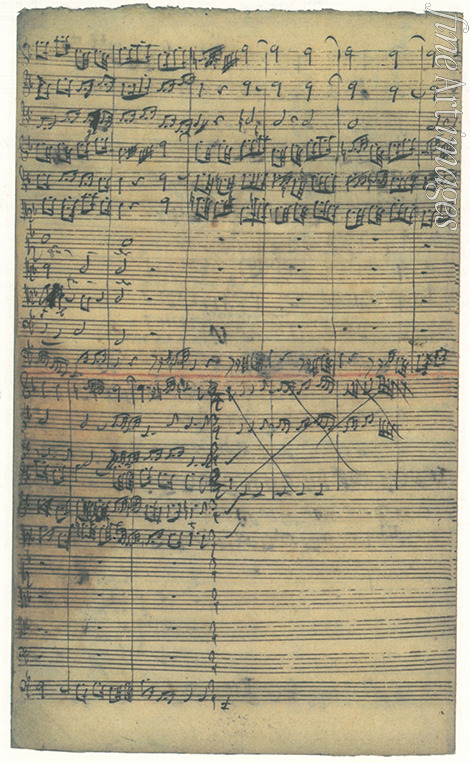 Fine Art Images
2